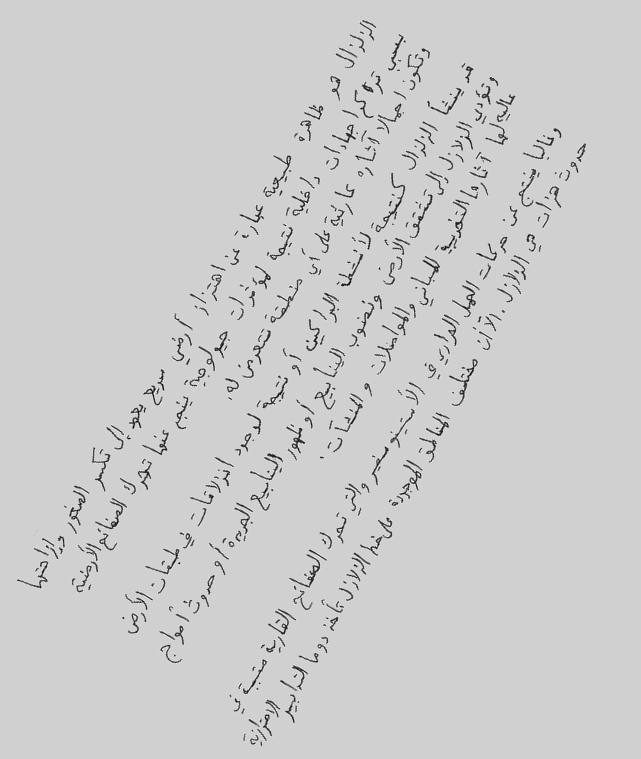 الزلزال هو ظاهرة طبيعية عبارة عن اهتزاز أرضي سريع يعود إلى تكسر الصخور وإزاحتها
بسبب تراكم إجهادات داخلية نتيجة لمؤثرات جيولوجية ينجم عنها تحرك الصفائح الأرضية
وتكون إجمالا آثاره كارثية على أي منطقة تتعرض له.
قد ينشأ الزلزال كنتيجة لأنشطة البراكين أو نتيجة لوجود انزلاقات في طبقات الأرض
وتؤدي الزلازل إلى تشقق الأرض ونضوب الينابيع أو ظهور الينابيع الجديدة أو حدوث أمواج
عالية لها آثارها التخريبية للمباني والمواصلات والمنشآت.
وغالبا ينتج عن حركات الحمل الحراري في الأستينوسفير والتي تحرك الصفائح القارية متسببة في
حدوث هزات هي الزلازل. الا أن مختلف المناطق الموجودة على خط الزلازل تأخذ دوما التدابير الاحترازية